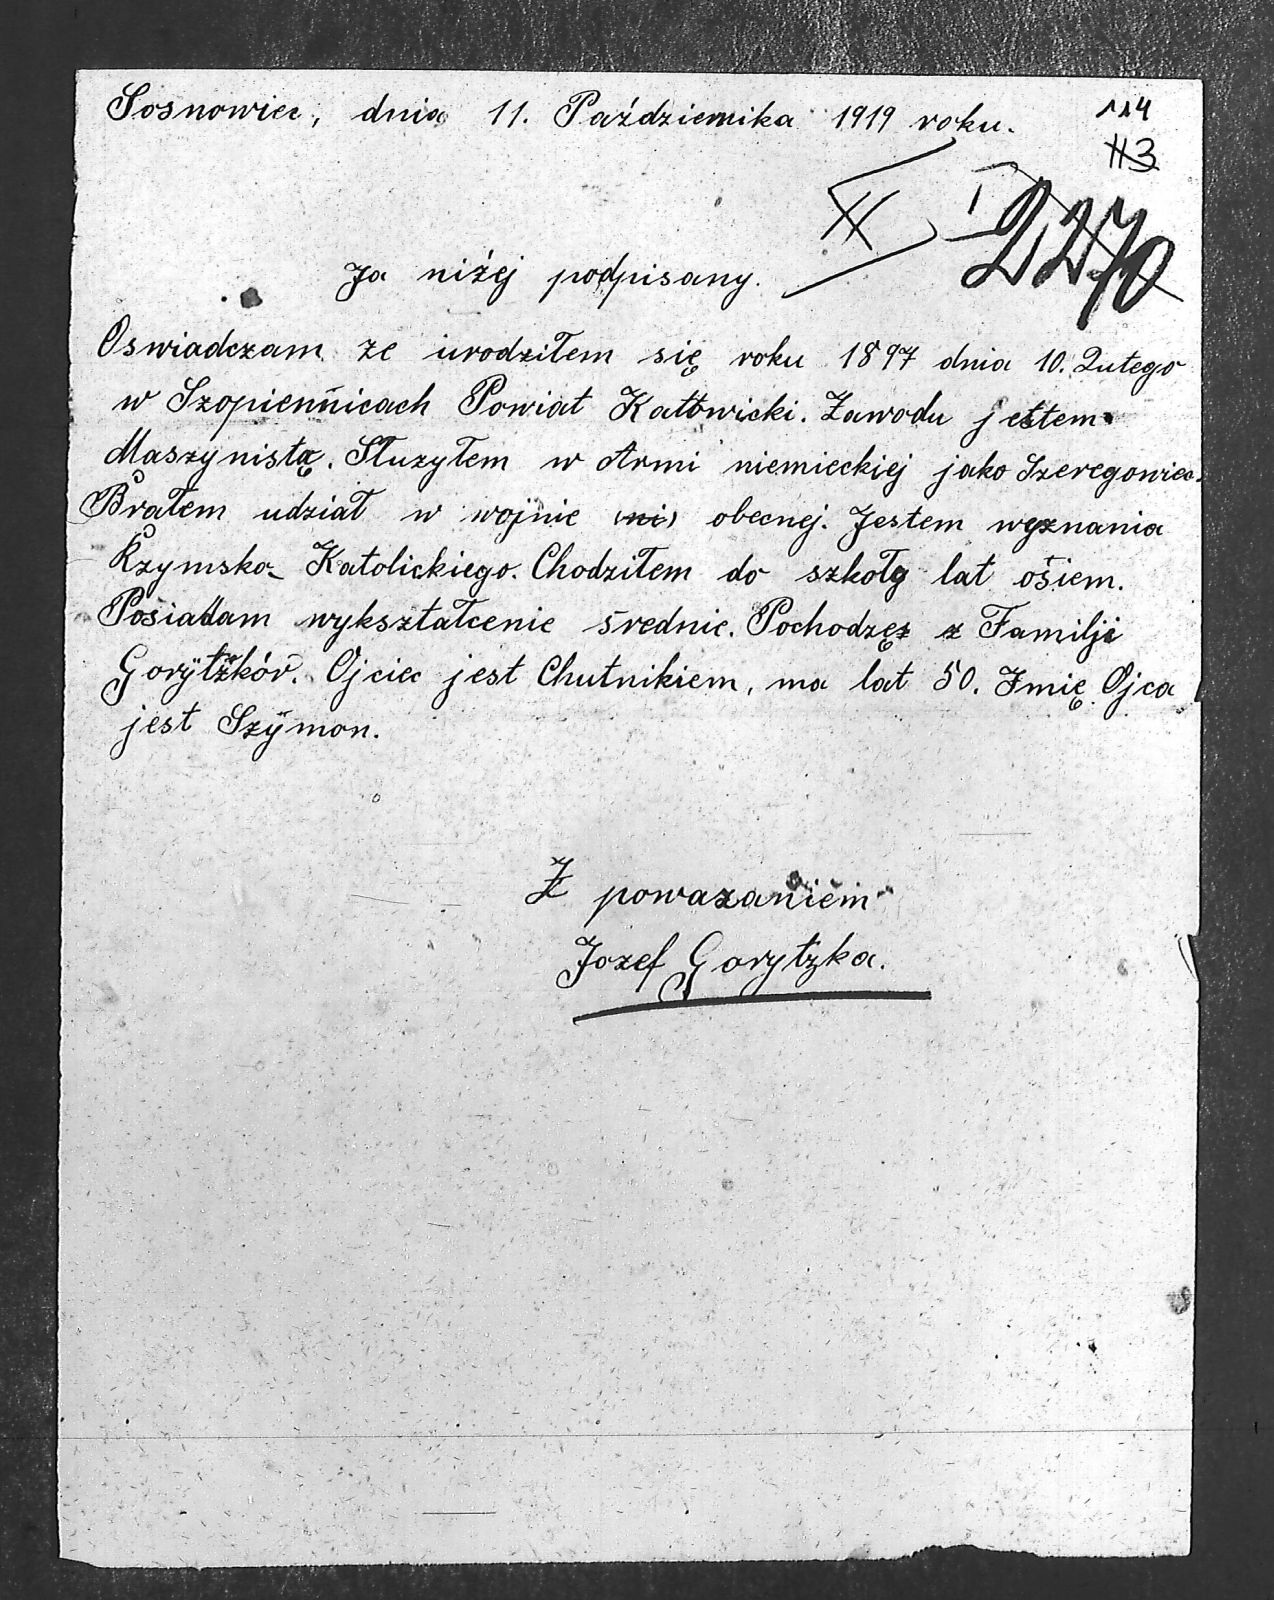 Sosnowiec, dnia 11. Października 1919 roku.
114
113
II
I 2270
Ja niżej podpisany.
Oswiadczam ze urodziłem się roku 1897 dnia 10. Lutego
w Szopiennicach Powiat Kattowicki. Zawodu jestem
Maszynistą. Słuzyłem w Armi niemieckiej jako Szeregowiec.
Brałem udział w wojnie (ni) obecnej. Jestem wyznania
Rzymsko-Katolickiego. Chodziłem do szkoły lat ośiem.
Pośiadam wykształcenie średnie. Pochodzę z Familji
Gorytzków. Ojciec jest Chutnikiem, ma lat 50. Imię Ojca
jest Szymon.
Z powazaniem
Jozef Gorytzka.